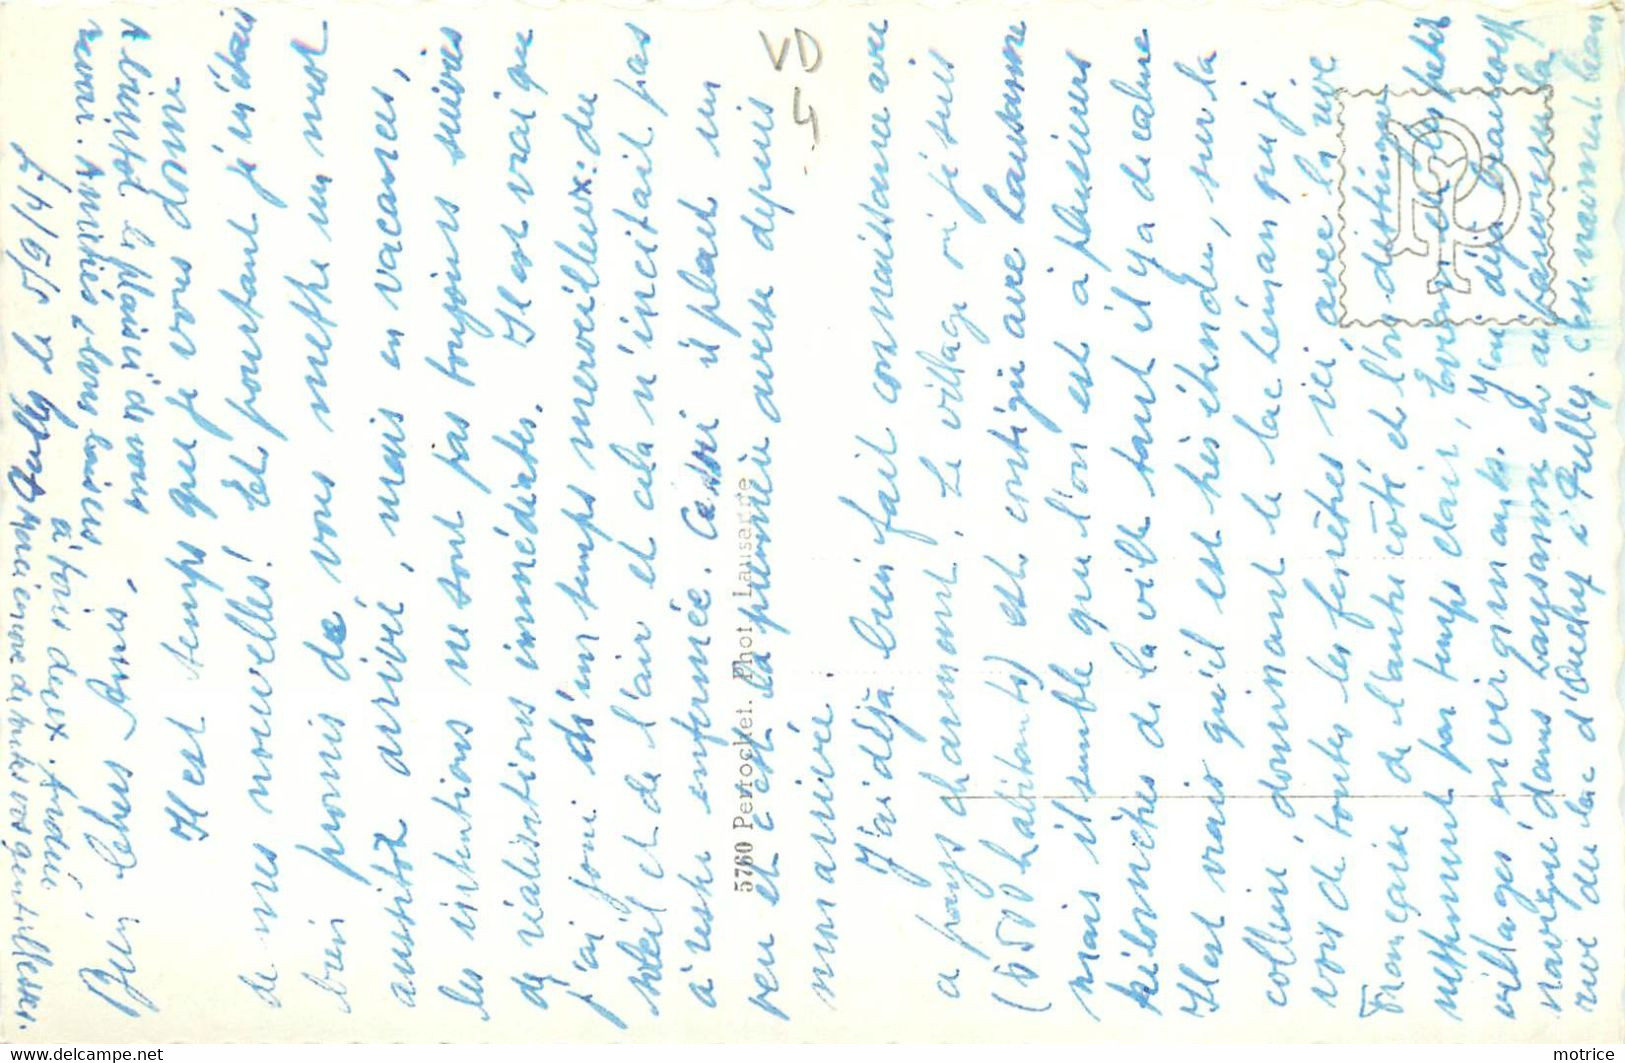 Bien chers Amis,
Il est temps que je vous donne
de mes nouvelles! Et pourtant je m'étais
bien promis de vous mettre un mot
aussitôt arrivé, mais en vacances,
les intentions ne sont pas toujours suivies
de réalisations immédiates. Il est vrai que
j'ai joui d'un temps merveilleux: du
soleil et de l'air et cela n'incitait pas
à rester enfermée. Ce soir il pleut un
peu et c'est la première averse depuis
mon arrivée.
J'ai déjà bien fait connaissance avec
ce pays charmant. Le village où je suis
(6500 habitants) est contigü avec Lausanne
mais il semble que l'on est à plusieurs
kilomètres de la ville tant il y a de calme
Il est vrai qu'il est très étendu, sur la
colline, dominant le lac Léman que je
vois de toutes les fenêtres ici, avec la rive
Française de l'autre côté et l'on distingue
nettement par temps clair, Evian et les petits
villages environnants. J'ai déjà beaucoup
navigué dans Lausanne et aujourd'hui la
rive du lac d'Ouchy à Pully. C'est vraiment beau
A bientôt le plaisir de vous
revoir. Amitiés et bons baisers
à tous deux. Andrée
Merci encore de toutes vos gentillesses.
5760 Perrochet. Phot Lausanne
VD
4
PP
motrice